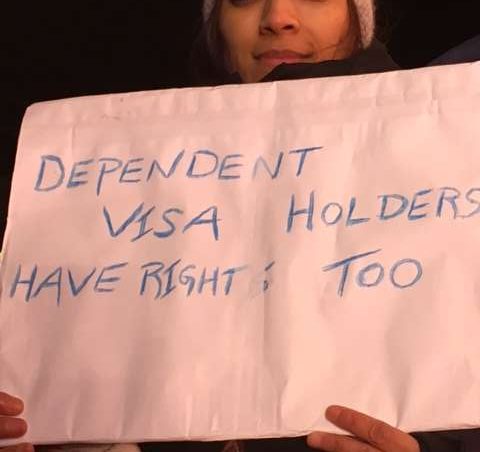 DEPENDENT
VISA HOLDERS
HAVE RIGHT; TOO